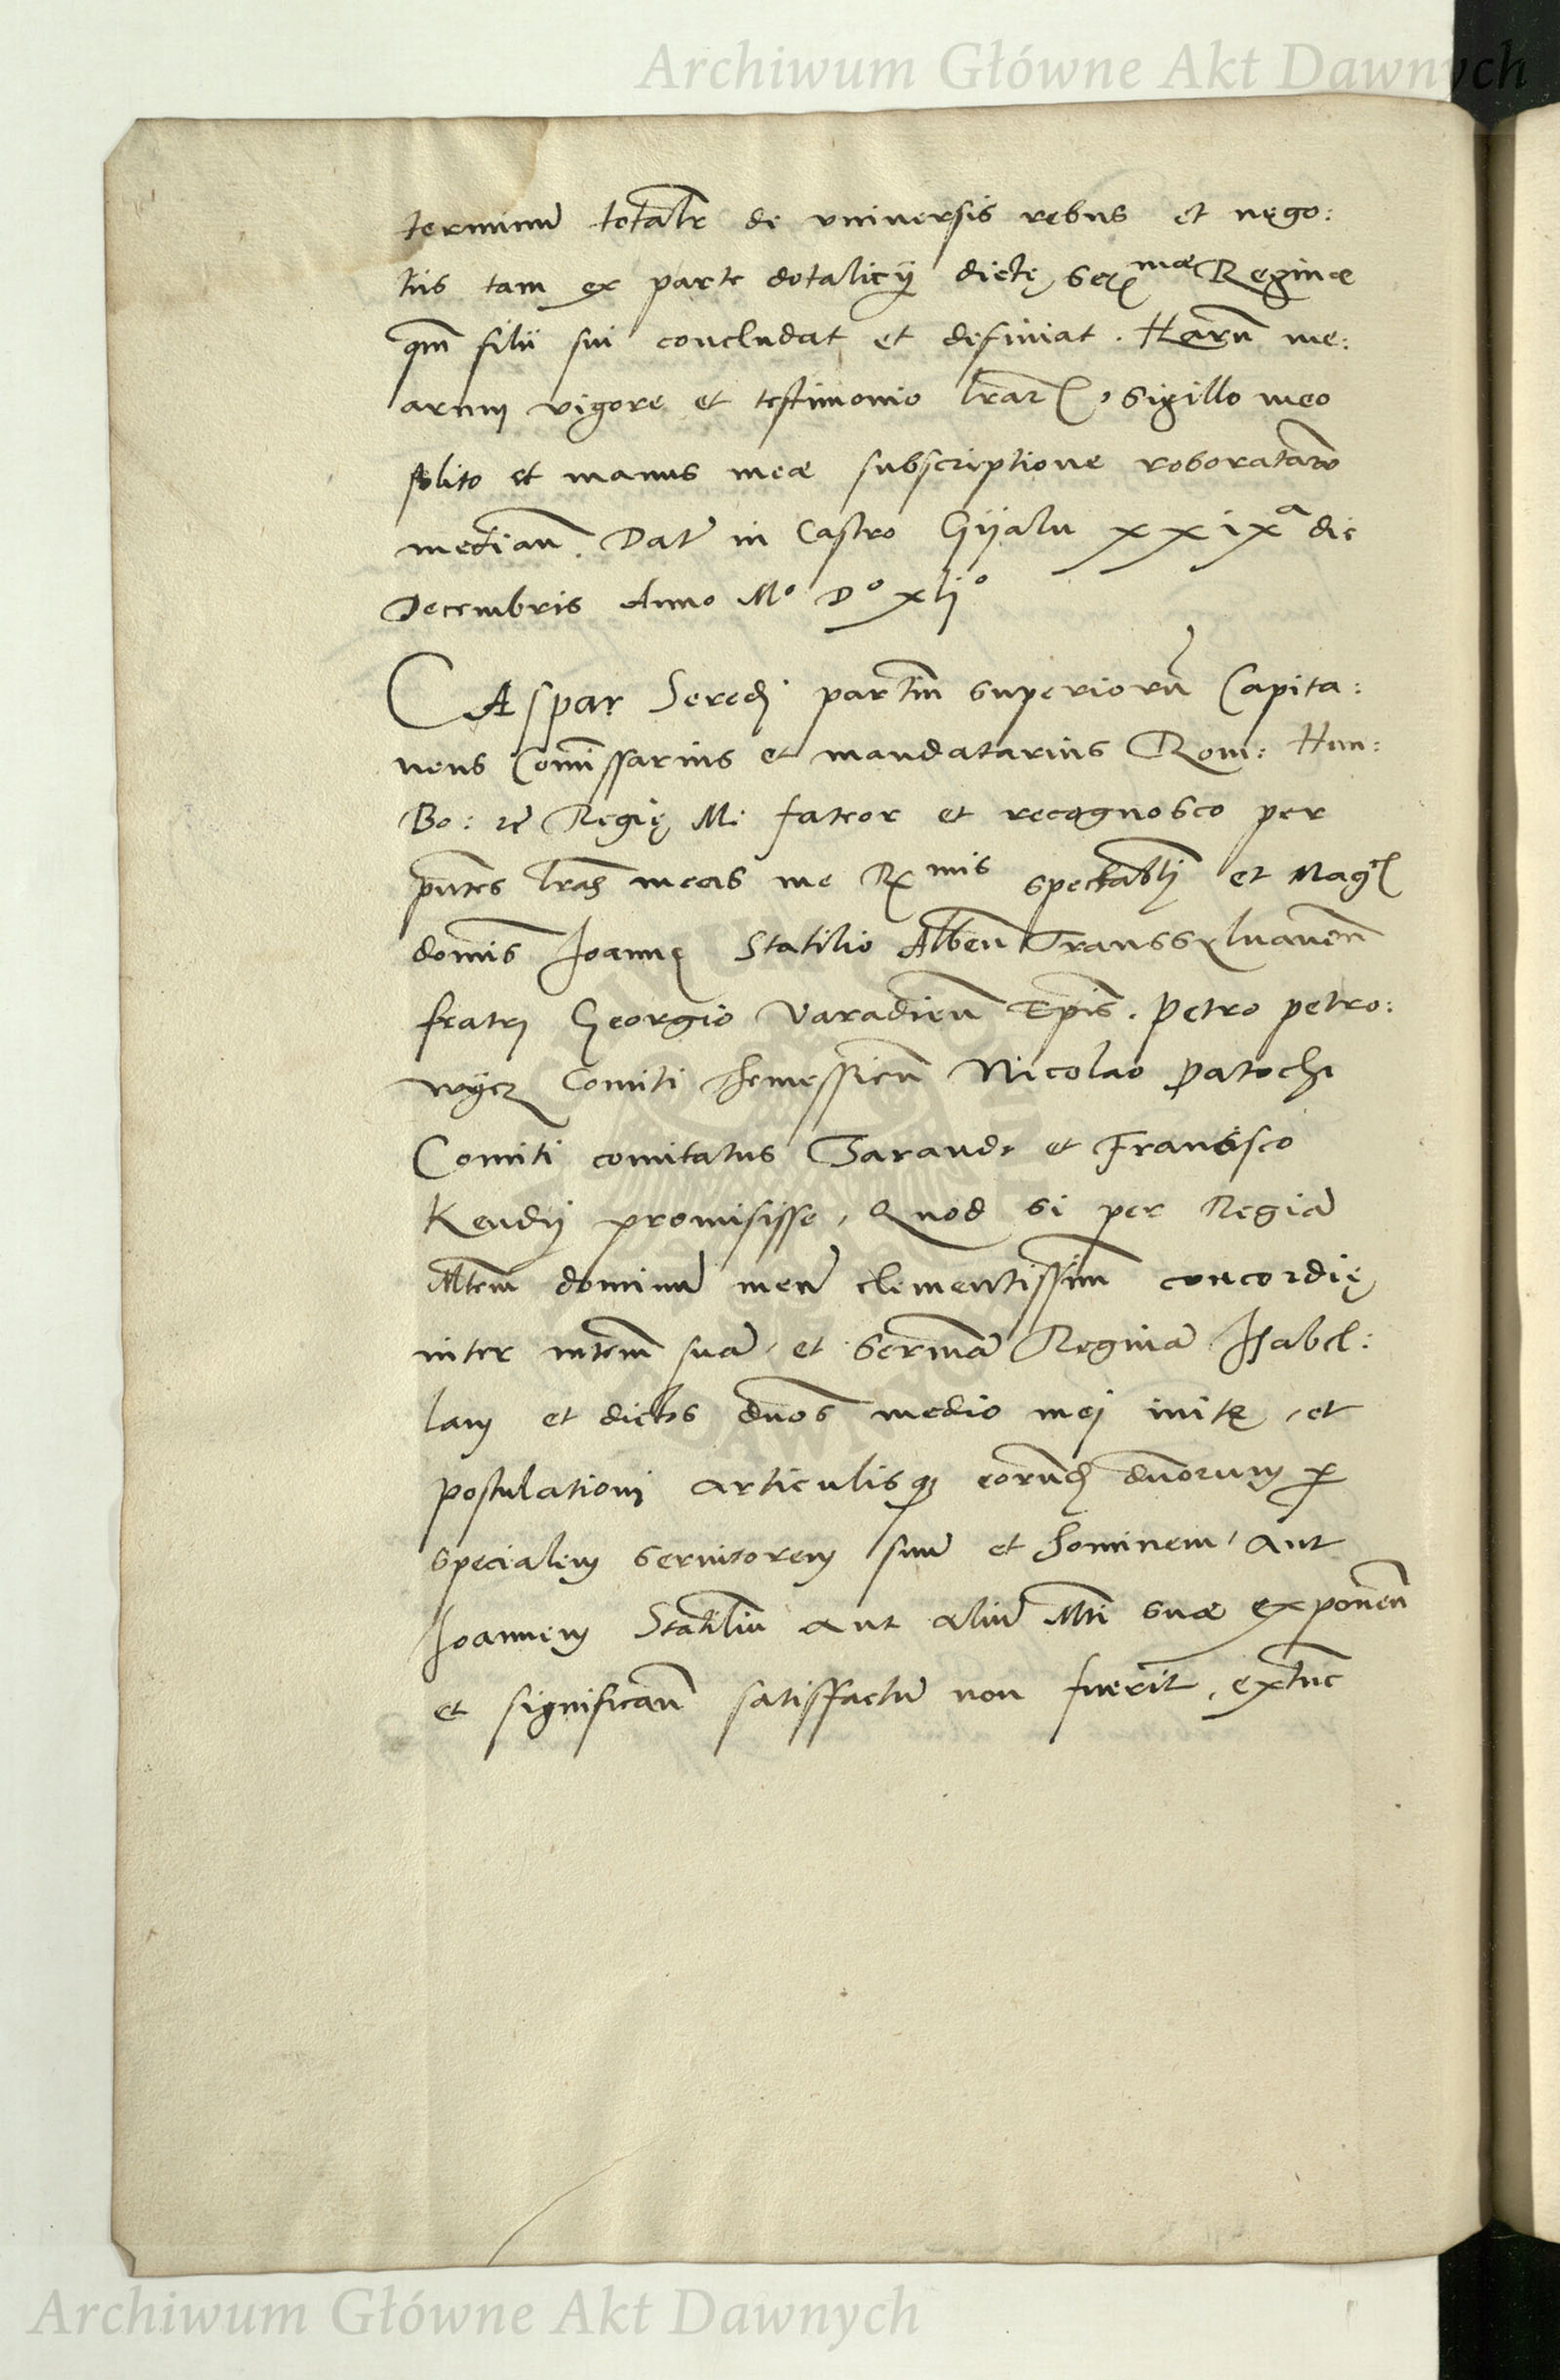 Archiwum Główne Akt Dawnych
terminū totalr̄ de vniuersis rebus et nego:
tiis tam ex parte dotalicij dictę Serᵐᵃᵉ Reginæ
qm̄ filii sui concludat et definiat. Harū me:
arum vigore et testimonio lr̄aꝝ, sigillo meo
solito et manus meæ subscriptione roboratarū
median̄. Dat̄ in Castro Gijalu xxixᵃ die
Decembris Anno Mº Dº xljº
CAspar Seredj partiū superiorū Capita:
neus Com̄issarius et mandatarius Rom: Hun:
Bo: ꝛc̄ Regię M: fateor et recognosco per
pn̄tes lr̄as meas me Rᵐⁱˢ spectabl̄j et Maḡ
dom̄is Joannj Statilio Alben̄ Transsyluanen̄
fratrj Georgio Varadien̄ Ep̄is. Petro petro:
wÿcz Comiti Themessien̄ Nicolao Patochi
Comiti comitatus Zarand et Francisco
Kendij promisisse, Quod si per Regiā
Mtem̄ dominū meū clementissim̄ concordię
inter mtem̄ suā, et Sermā Reginā Isabel:
lam et dictos dn̄os medio mej initę, et
postulationi articulisqꝫ eorundē dn̄orum ꝑ
specialem seruitorem suū et hominem, aut
Joannem Statiliū aut aliū Mti suæ exponen̄
et significan̄ satisffactū non fuerit, extunc
Archiwum Główne Akt Dawnych